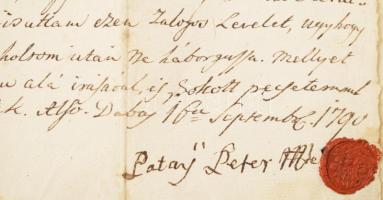 isattam ezen Zalogos Levelet, ugyhogy
holtom után Ne háborgassa. Mellyet
alá irásával, és szokott pecsetemmel
k. Alsó. Dabas 16a Septembr. 1790
Pataÿ Peter